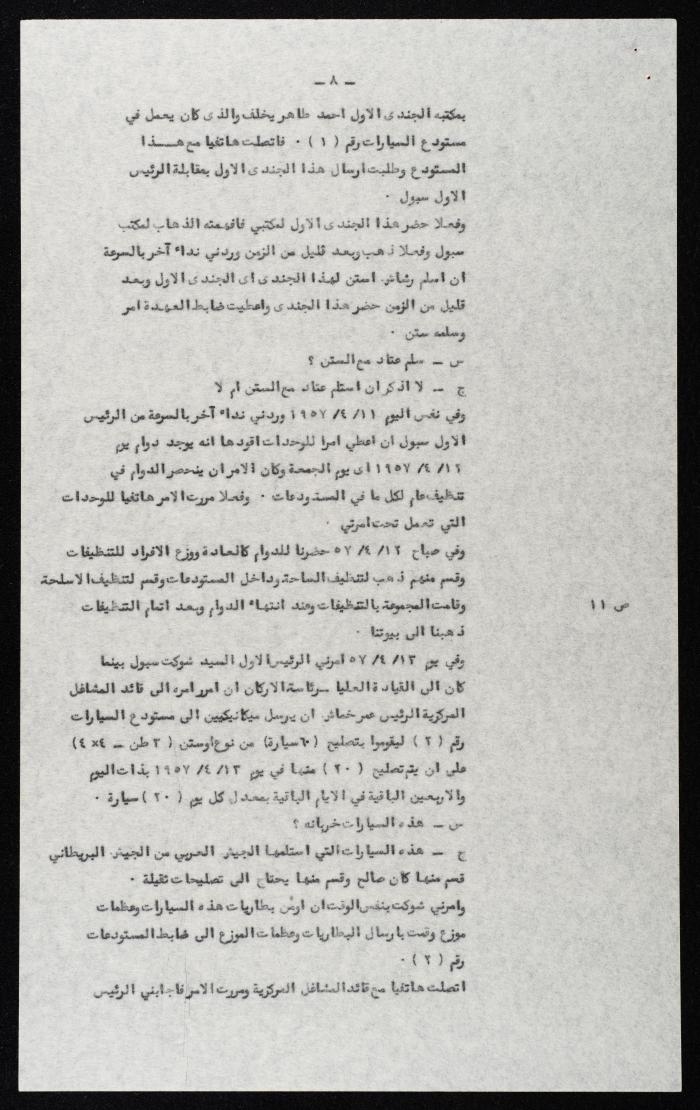 — ٨ —
بمكتبه الجندى الاول احمد طاهر يخلف والذى كان يعمل في
مستودع السيارات رقم ( ١ ) ٠ فاتصلت هاتفيا مع هــذا
المستودع وطلبت ارسال هذا الجندى الاول بمقابلة الرئيس
الاول سبول ٠
وفعلا حضر هذا الجندى الاول لمكتبي فافهمته الذهاب لمكتب
سبول وفعلا ذهب وبعد قليل من الزمن وردني نداء آخر بالسرعة
ان اسلم رشاش استن لهذا الجندى اى الجندى الاول وبعد
قليل من الزمن حضر هذا الجندى واعطيت ضابط العهدة امر
وسلمه ستن ٠
س — سلم عتاد مع الستن ؟
ج — لا اذكر ان استلم عتاد مع الستن ام لا
وفي نفس اليوم ١١/ ٤/ ١٩٥٧ وردني نداء آخر بالسرعة من الرئيس
الاول سبول ان اعطي امرا للوحدات اقودها انه يوجد دوام يوم
١٢/ ٤/ ١٩٥٧ اى يوم الجمعة وكان الامر ان ينحصر الدوام في
تنظيف عام لكل ما في المستودعات ٠ وفعلا مررت الامر هاتفيا للوحدات
التي تعمل تحت امرتي ٠
وفي صباح ١٢/ ٤/ ٥٧ حضرنا للدوام كالعادة ووزع الافراد للتنظيفات
وقسم منهم ذهب لتنظيف الساحة وداخل المستودعات وقسم لتنظيف الاسلحة
وقامت المجموعة بالتنظيفات وعند انتهاء الدوام وبعد اتمام التنظيفات
ص ١١
ذهبنا الى بيوتنا ٠
وفي يوم ١٣/ ٤/ ٥٧ امرني الرئيس الاول السيد شوكت سبول بينما
كان الى القيادة العليا ــ رئاسة الاركان ان امرر امره الى قائد المشاغل
المركزية الرئيس عمر خماش ان يرسل ميكانيكيين الى مستودع السيارات
رقم ( ٢ ) ليقوموا بتصليح ( ٦٠ سيارة) من نوع اوستن ( ٣ طن — ٤× ٤)
على ان يتم تصليح ( ٢٠ ) منها في يوم ١٣/ ٤/ ١٩٥٧ بذات اليوم
والاربعين الباقية في الايام الباقية بمعدل كل يوم ( ٢٠ ) سيارة ٠
س — هذه السيارات خربانه ؟
ج — هذه السيارات التي استلمها الجيش العربي من الجيش البريطاني
قسم منها كان صالح وقسم منها يحتاج الى تصليحات ثقيلة ٠
وامرني شوكت بنفس الوقت ان اومن بطاريات هذه السيارات وعظمات
موزع وقمت بارسال البطاريات وعظمات الموزع الى ضابط المستودعات
رقم ( ٢ ) ٠
اتصلت هاتفيا مع قائد المشاغل المركزية ومررت الامر فاجابني الرئيس